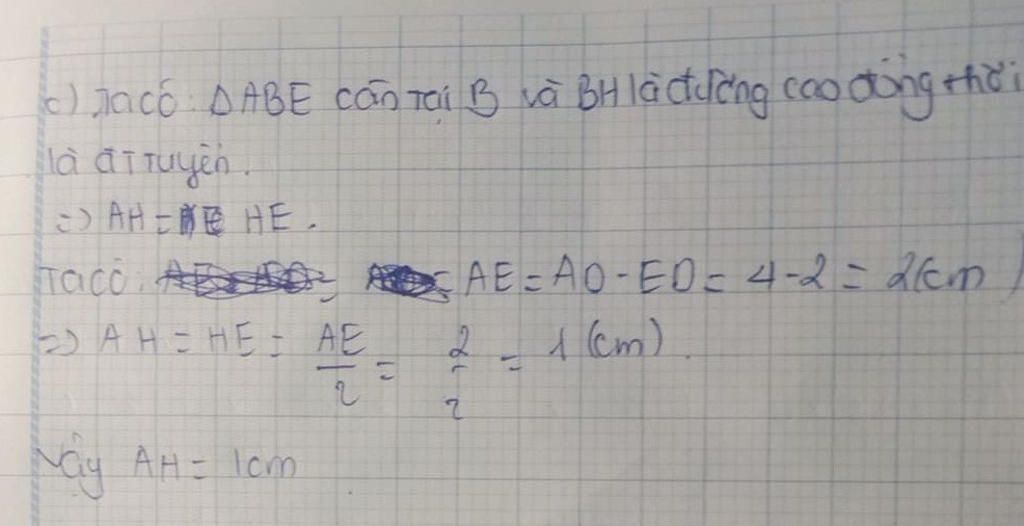 c) Ta có: ΔABE cân tại B và BH là đường cao đồng thời
là đ.tuyến.
=> AH = HE.
Ta có: = AE = AD - ED = 4 - 2 = 2(cm)
=> AH = HE = AE/2 = 2/2 = 1 (cm).
Vậy AH = 1cm